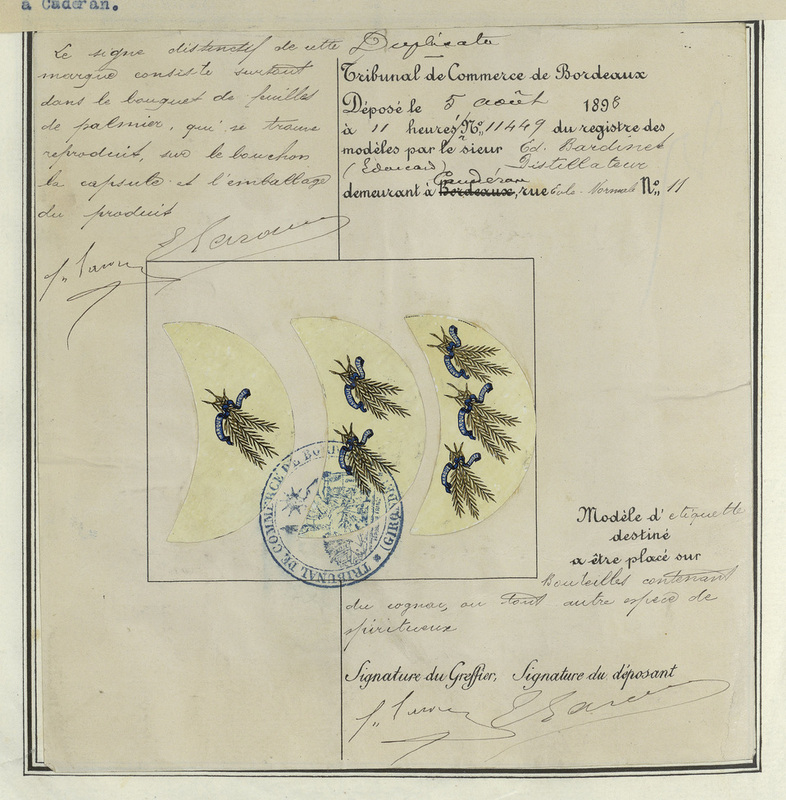 à Cadéran.
Le signe distinctif de cette
marque consiste surtout
dans le bouquet de feuilles
de palmier, qui se trouve
reproduit, sur le bouchon
la capsule et l'emballage
du produit
Duplicata
Tribunal de Commerce de Bordeaux
Déposé le 5 août 1898
à 11 heures, No. 11449 du registre des
modèles par le sieur Ed. Bardinet
(Edouard) Distillateur
Caudéran
demeurant à Bordeaux, rue Ecole-Normale No. 11
TRIBUNAL DE COMMERCE DE BORDEAUX
(GIRONDE)
Modèle d'etiquette
destiné
a être placé sur
Bouteilles contenant
du cognac, ou tout autre espèce de
spiritueux
Signature du Greffier, Signature du déposant